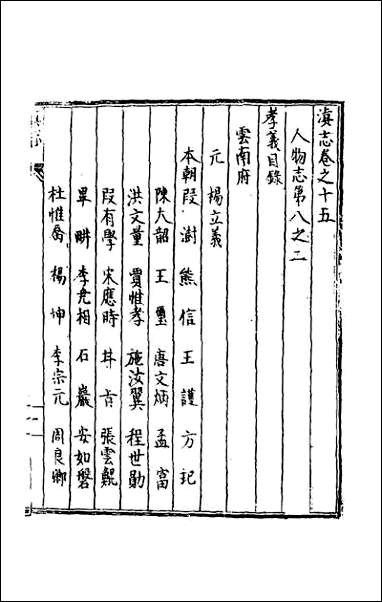 滇志卷之十五
人物志第八之二
孝義目錄
雲南府
元 楊立義
本朝段澍 熊信 王護 方玘
陳大韶 王璽 唐文炳 孟富
洪文量 賈惟孝 施汝翼 程世勛
段有學 宋應時 井吉 張雲鯤
畢畊 李允相 石巖 安如磐
杜惟喬 楊坤 李宗元 周良卿